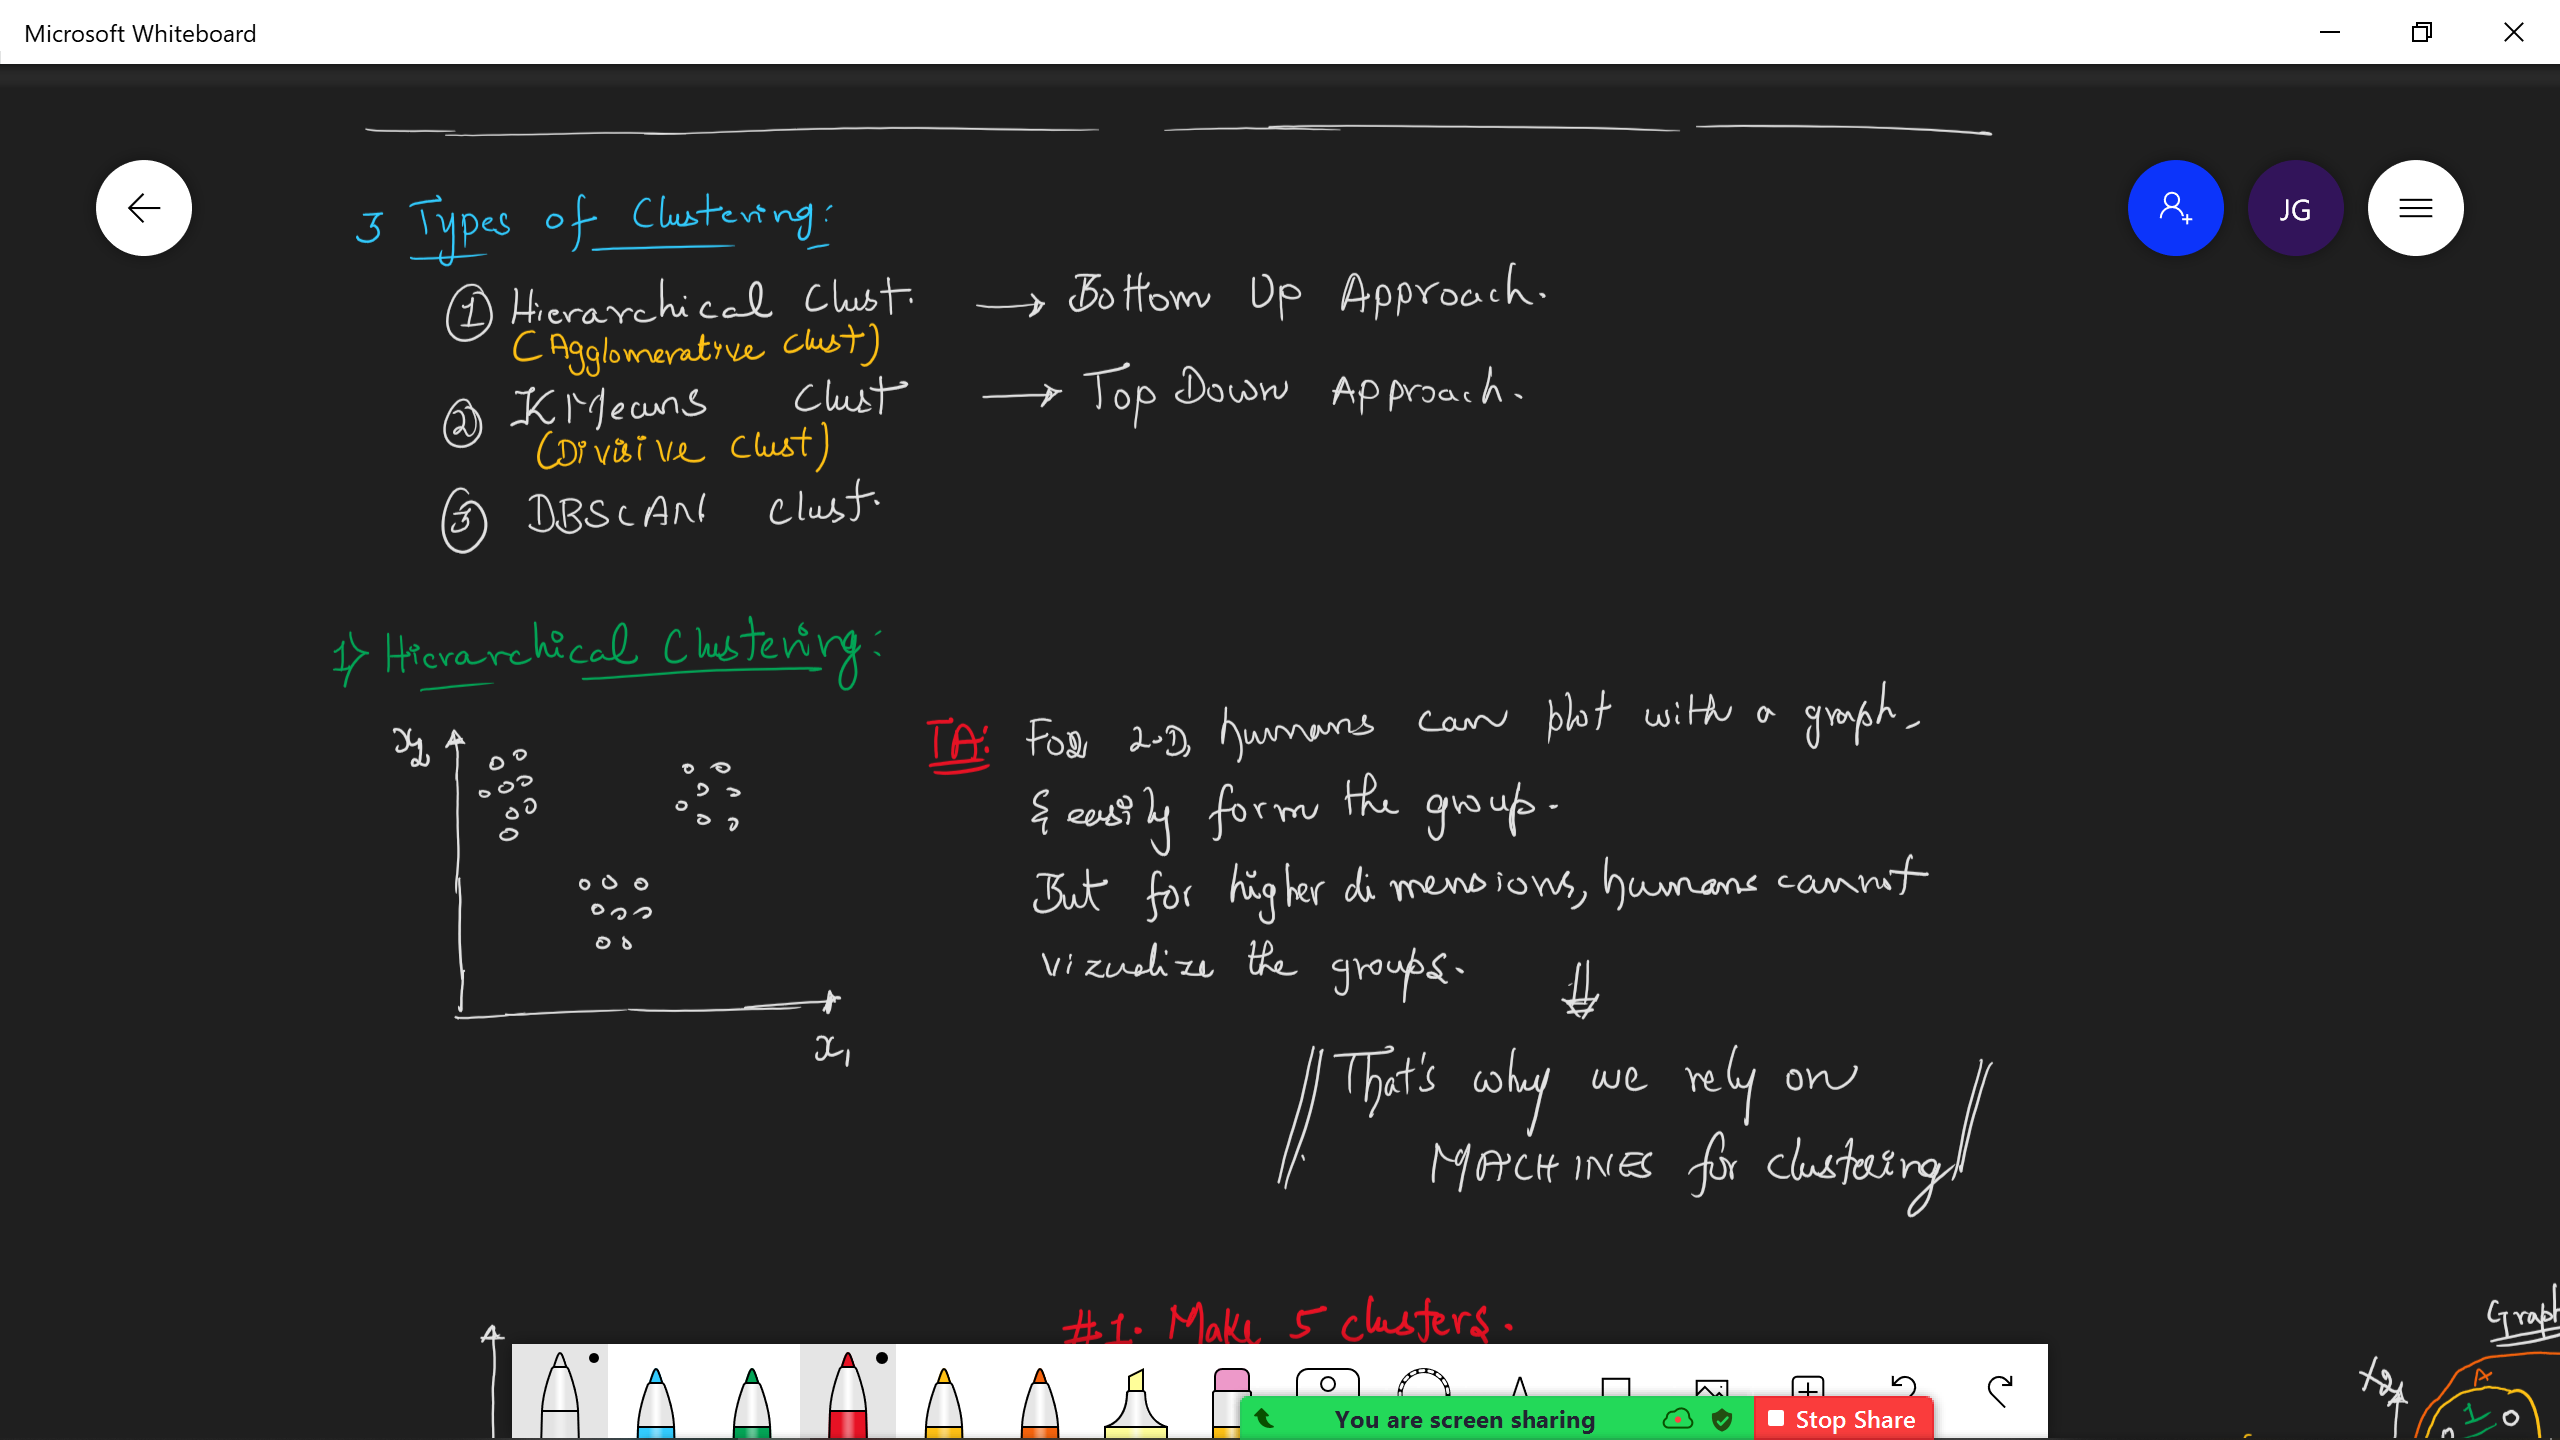 Microsoft Whiteboard
JG
3 Types of Clustering:
1 Hierarchical Clust. → Bottom Up Approach.
(Agglomerative Clust)
2 KMeans Clust → Top Down Approach.
(Divisive Clust)
3 DBSCAN Clust.
1) Hierarchical Clustering:
x2
x1
TA: For 2-D, humans can plot with a graph.
& easily form the group.
But for higher dimensions, humans cannot
vizualize the groups.
That's why we rely on
MACHINES for clustering
#1. Make 5 clusters.
Graph
x2
A
1
You are screen sharing
Stop Share